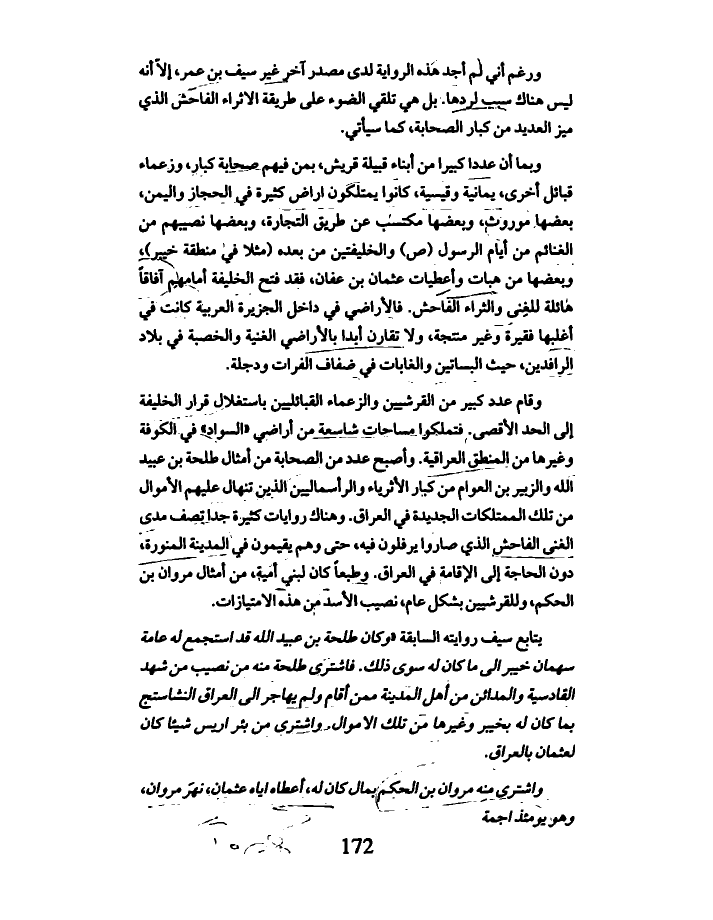 ورغم أني لم أجد هذه الرواية لدى مصدر آخر غير سيف بن عمر، إلاّ أنه
ليس هناك سبب لردها. بل هي تلقي الضوء على طريقة الاثراء الفاحش الذي
ميز العديد من كبار الصحابة، كما سيأتي.
وبما أن عددا كبيرا من أبناء قبيلة قريش، بمن فيهم صحابة كبار، وزعماء
قبائل أخرى، يمانية وقيسية، كانوا يمتلكون اراض كثيرة في الحجاز واليمن،
بعضها موروث، وبعضها مكتسب عن طريق التجارة، وبعضها نصيبهم من
الغنائم من أيام الرسول (ص) والخليفتين من بعده (مثلا في منطقة خيبر)،
وبعضها من هبات وأعطيات عثمان بن عفان، فقد فتح الخليفة أمامهم آفاقاً
هائلة للغنى والثراء الفاحش. فالأراضي في داخل الجزيرة العربية كانت في
أغلبها فقيرة وغير منتجة، ولا تقارن أبدا بالأراضي الغنية والخصبة في بلاد
الرافدين، حيث البساتين والغابات في ضفاف الفرات ودجلة.
وقام عدد كبير من القرشيين والزعماء القبائليين باستغلال قرار الخليفة
إلى الحد الأقصى. فتملكوا مساحات شاسعة من أراضي «السواد» في الكوفة
وغيرها من المنطق العراقية. وأصبح عدد من الصحابة من أمثال طلحة بن عبيد
الله والزبير بن العوام من كبار الأثرياء والرأسماليين الذين تنهال عليهم الأموال
من تلك الممتلكات الجديدة في العراق. وهناك روايات كثيرة جدا تصف مدى
الغنى الفاحش الذي صاروا يرفلون فيه، حتى وهم يقيمون في المدينة المنورة،
دون الحاجة إلى الإقامة في العراق. وطبعاً كان لبني أمية، من أمثال مروان بن
الحكم، وللقرشيين بشكل عام، نصيب الأسد من هذه الامتيازات.
يتابع سيف روايته السابقة «وكان طلحة بن عبيد الله قد استجمع له عامة
سهمان خيبر الى ما كان له سوى ذلك. فاشترى طلحة منه من نصيب من شهد
القادسية والمدائن من أهل المدينة ممن أقام ولم يهاجر الى العراق النشاستج
بما كان له بخيبر وغيرها من تلك الاموال. واشترى من بئر اريس شيئا كان
لعثمان بالعراق.
واشترى منه مروان بن الحكم بمال كان له، أعطاه اياه عثمان، نهر مروان،
وهو يومئذ اجمة
172